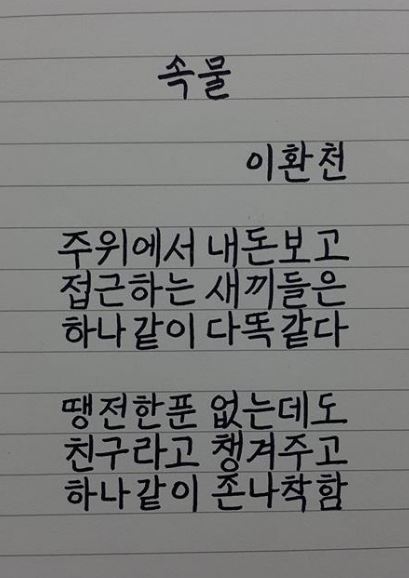 속물
이환천
주위에서 내돈보고
접근하는 새끼들은
하나같이 다똑같다
땡전한푼 없는데도
친구라고 챙겨주고
하나같이 존나착함